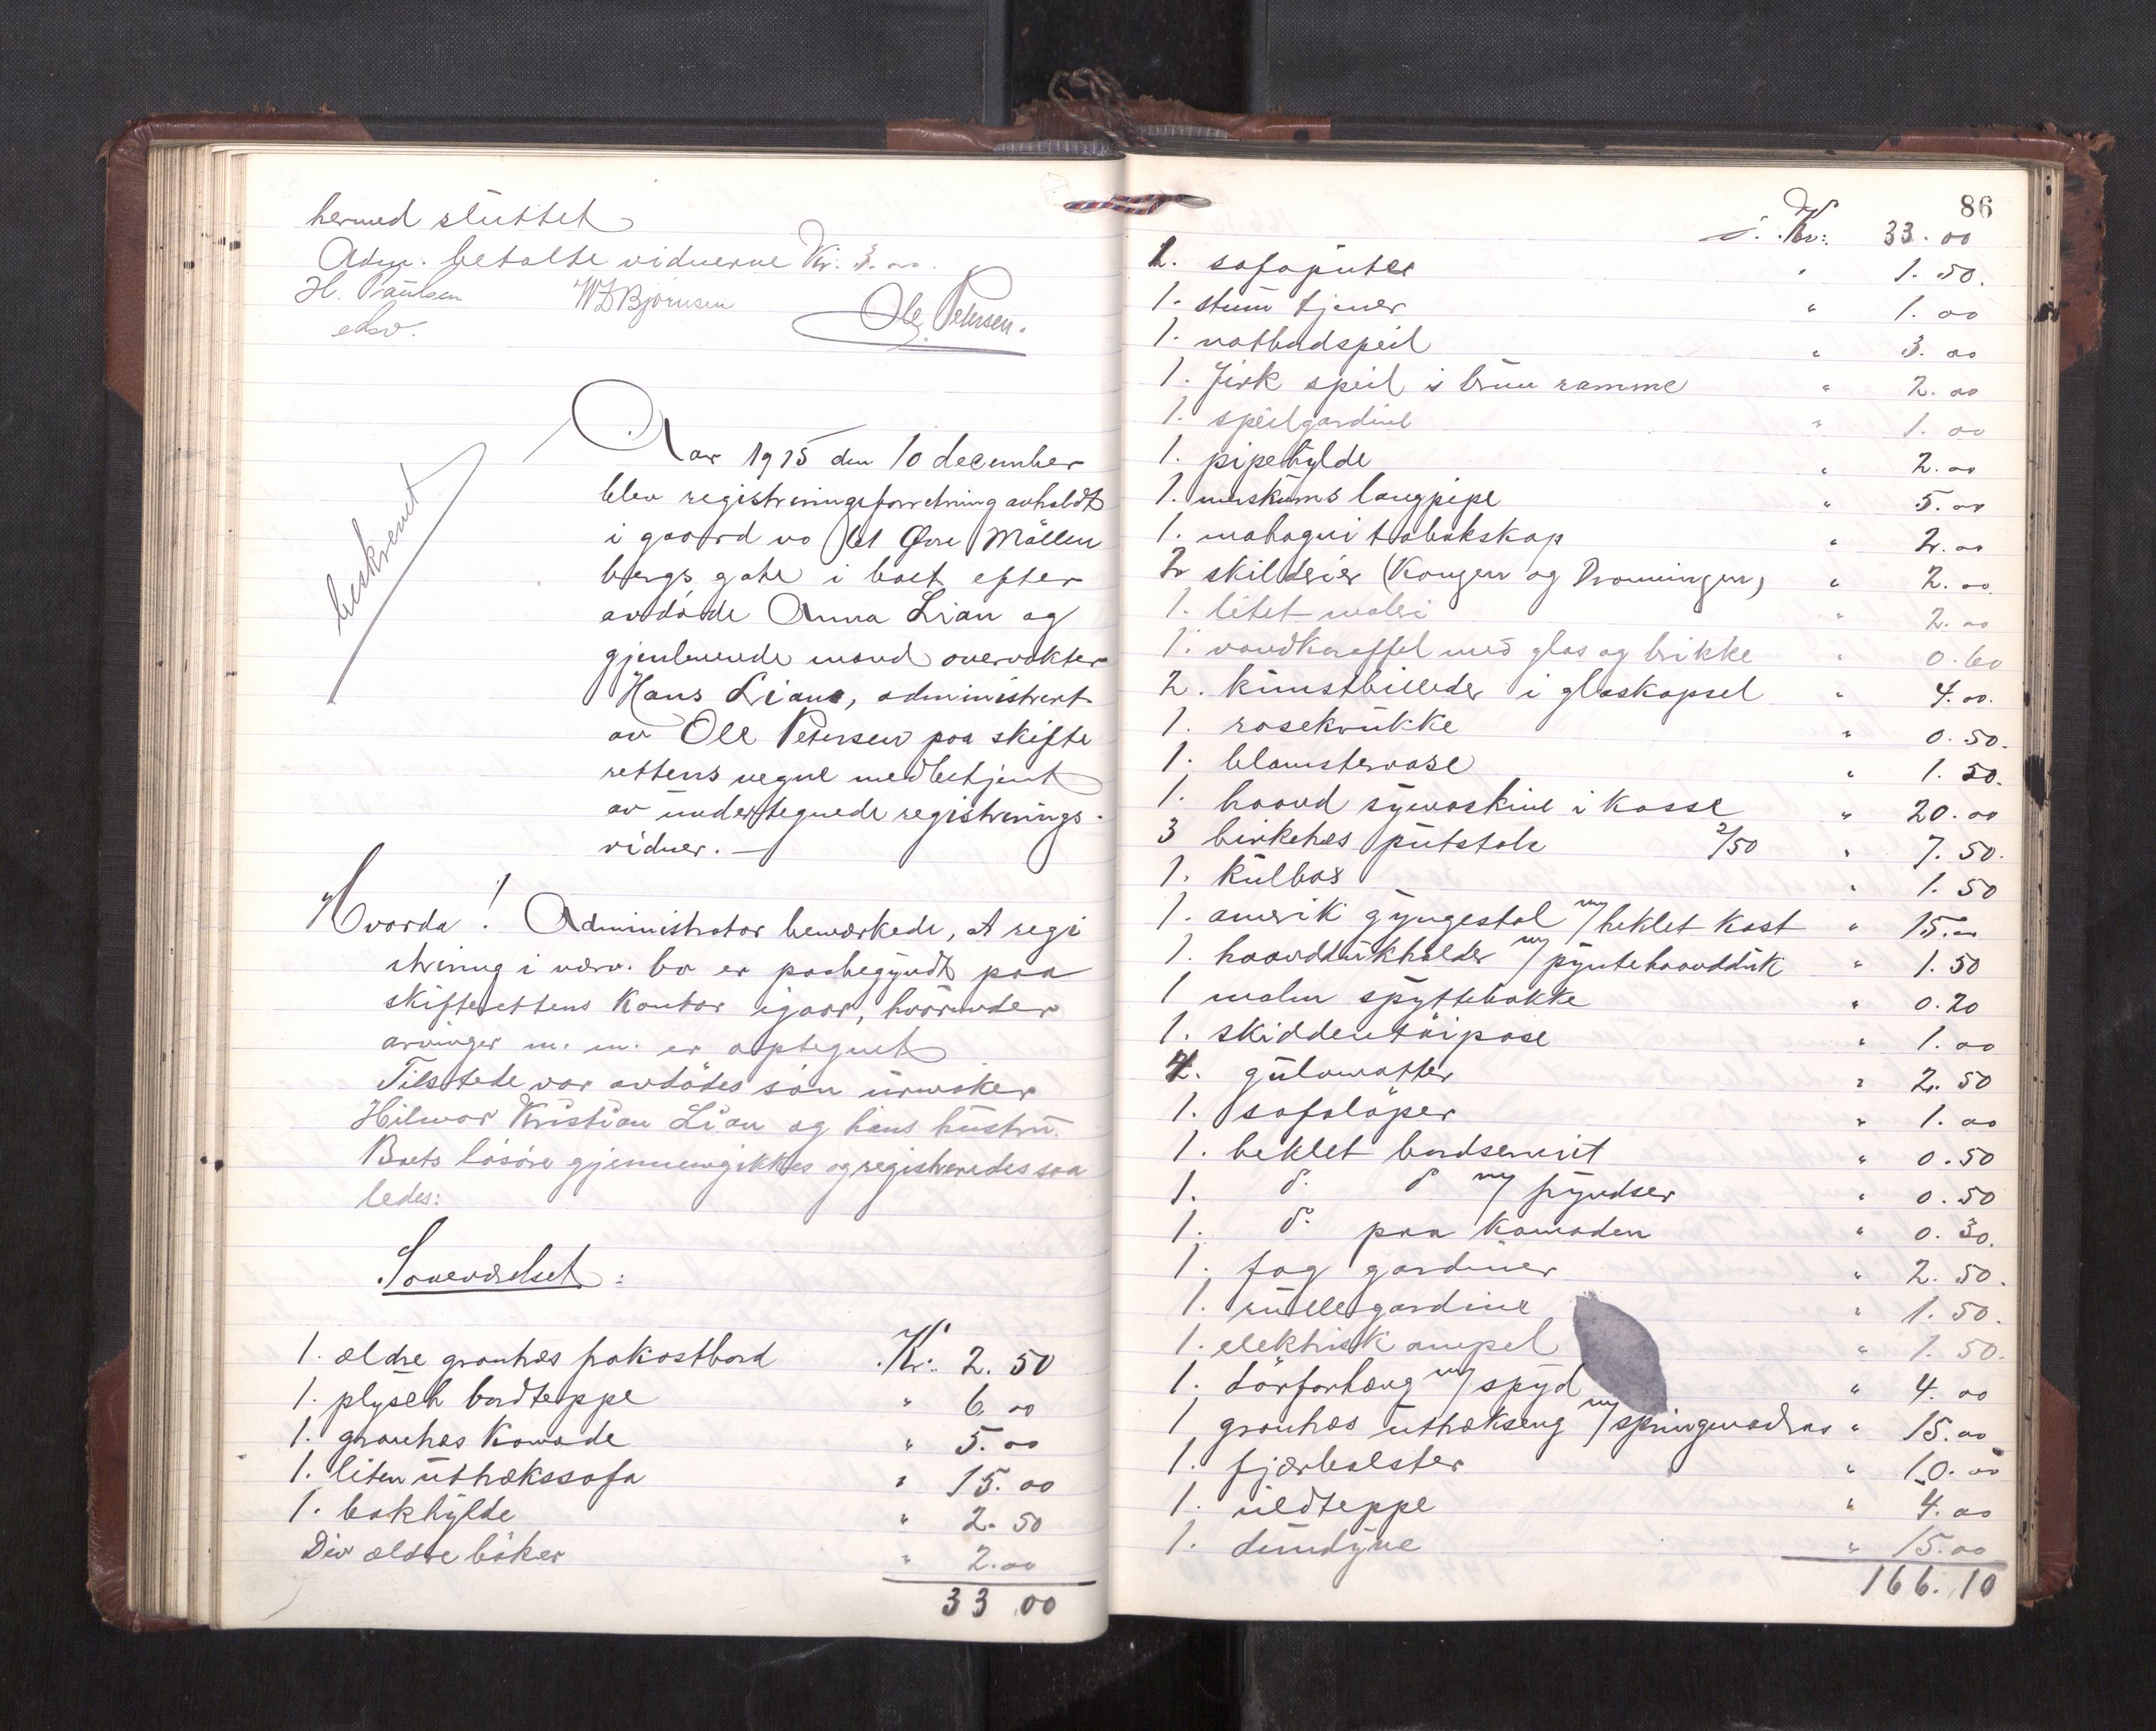 hermed sluttet
Adm. betalte vidnerne Kr. 3.00.
H. Paulsen W Bjørnsen Ole Petersen.
eksv.
beskrevet
Aar 1915 den 10 december
blev registreringsforretning avholdt
i gaard no 61 Øvre Möllen
bergs gate i boet efter
avdöde Anna Lian og
gjenlevende mand overvakter
Hans Lian, administrert
av Ole Petersen paa skifte
rettens vegne med betjent
av undertegnede registrerings
vidner. —
Hvorda! Administrator bemærkede, at regi
strering i nærv. bo er paabegyndt paa
skifterettens kontor igaar, hvorunder
arvinger m. m. er optegnet
Tilstede var avdödes sön urmaker
Hilmar Kristian Lian og hans hustru.
Boets lösöre gjennemgikkes og registreredes saa
ledes:
Soveværelset:
1. ældre granhæs frokostbord Kr. 2.50
1. plysch bordteppe " 6.00
1. granhæs Komode " 5.00
1. liten uthækssofa " 15.00
1. bokhylde " 2.50
Div ældre böker " 2.00
33.00
86
Kr: 33.00
2. sofaputer " 1.50.
1. stum tjener " 1.00
1. natbordspeil " 3.00
1. firk speil i brun ramme " 2.00
1. speilgardine " 1.00
1. pipehylde " 2.00
1. merskums langpipe " 5.00
1. mahogni tobakskap " 2.00
2 skilderier (Kongen og Dronningen) " 2.00
1. litet maleri " 2.00
1. vandkaraffel med glas og brikke " 0.60
2. kunstbilleder i glaskapsel " 4.00.
1. rosekrukke " 0.50.
1. blomstervase " 1.50.
1. haand symaskine i Kasse " 20.00
3 birkehæs putstole 2/50 " 7.50.
1. kulbox " 1.50
1. amerik gyngestol m/ heklet kast " 15.00
1. haanddukholder m/ pyntehaandduk " 1.50
1 malm spyttebakke " 0.20
1. skiddentöipose " 1.00
4. gulvmatter " 2.50
1. sofalöper " 1.00
1. heklet bordserviet " 0.50
1. d. d m/ fryndser " 0.50
1. d. paa Komoden " 0.30.
1. fag gardiner " 2.50.
1. rullegardine " 1.50.
1. elektrisk ampel " 1.50.
1. dörforhæng m/ spyd " 4.00
1 granhæs uthækseng m/ springmadras " 15.00
1. fjærbolster " 10.00
1. uldteppe " 4.00
1. dundyne " 15.00
166.10